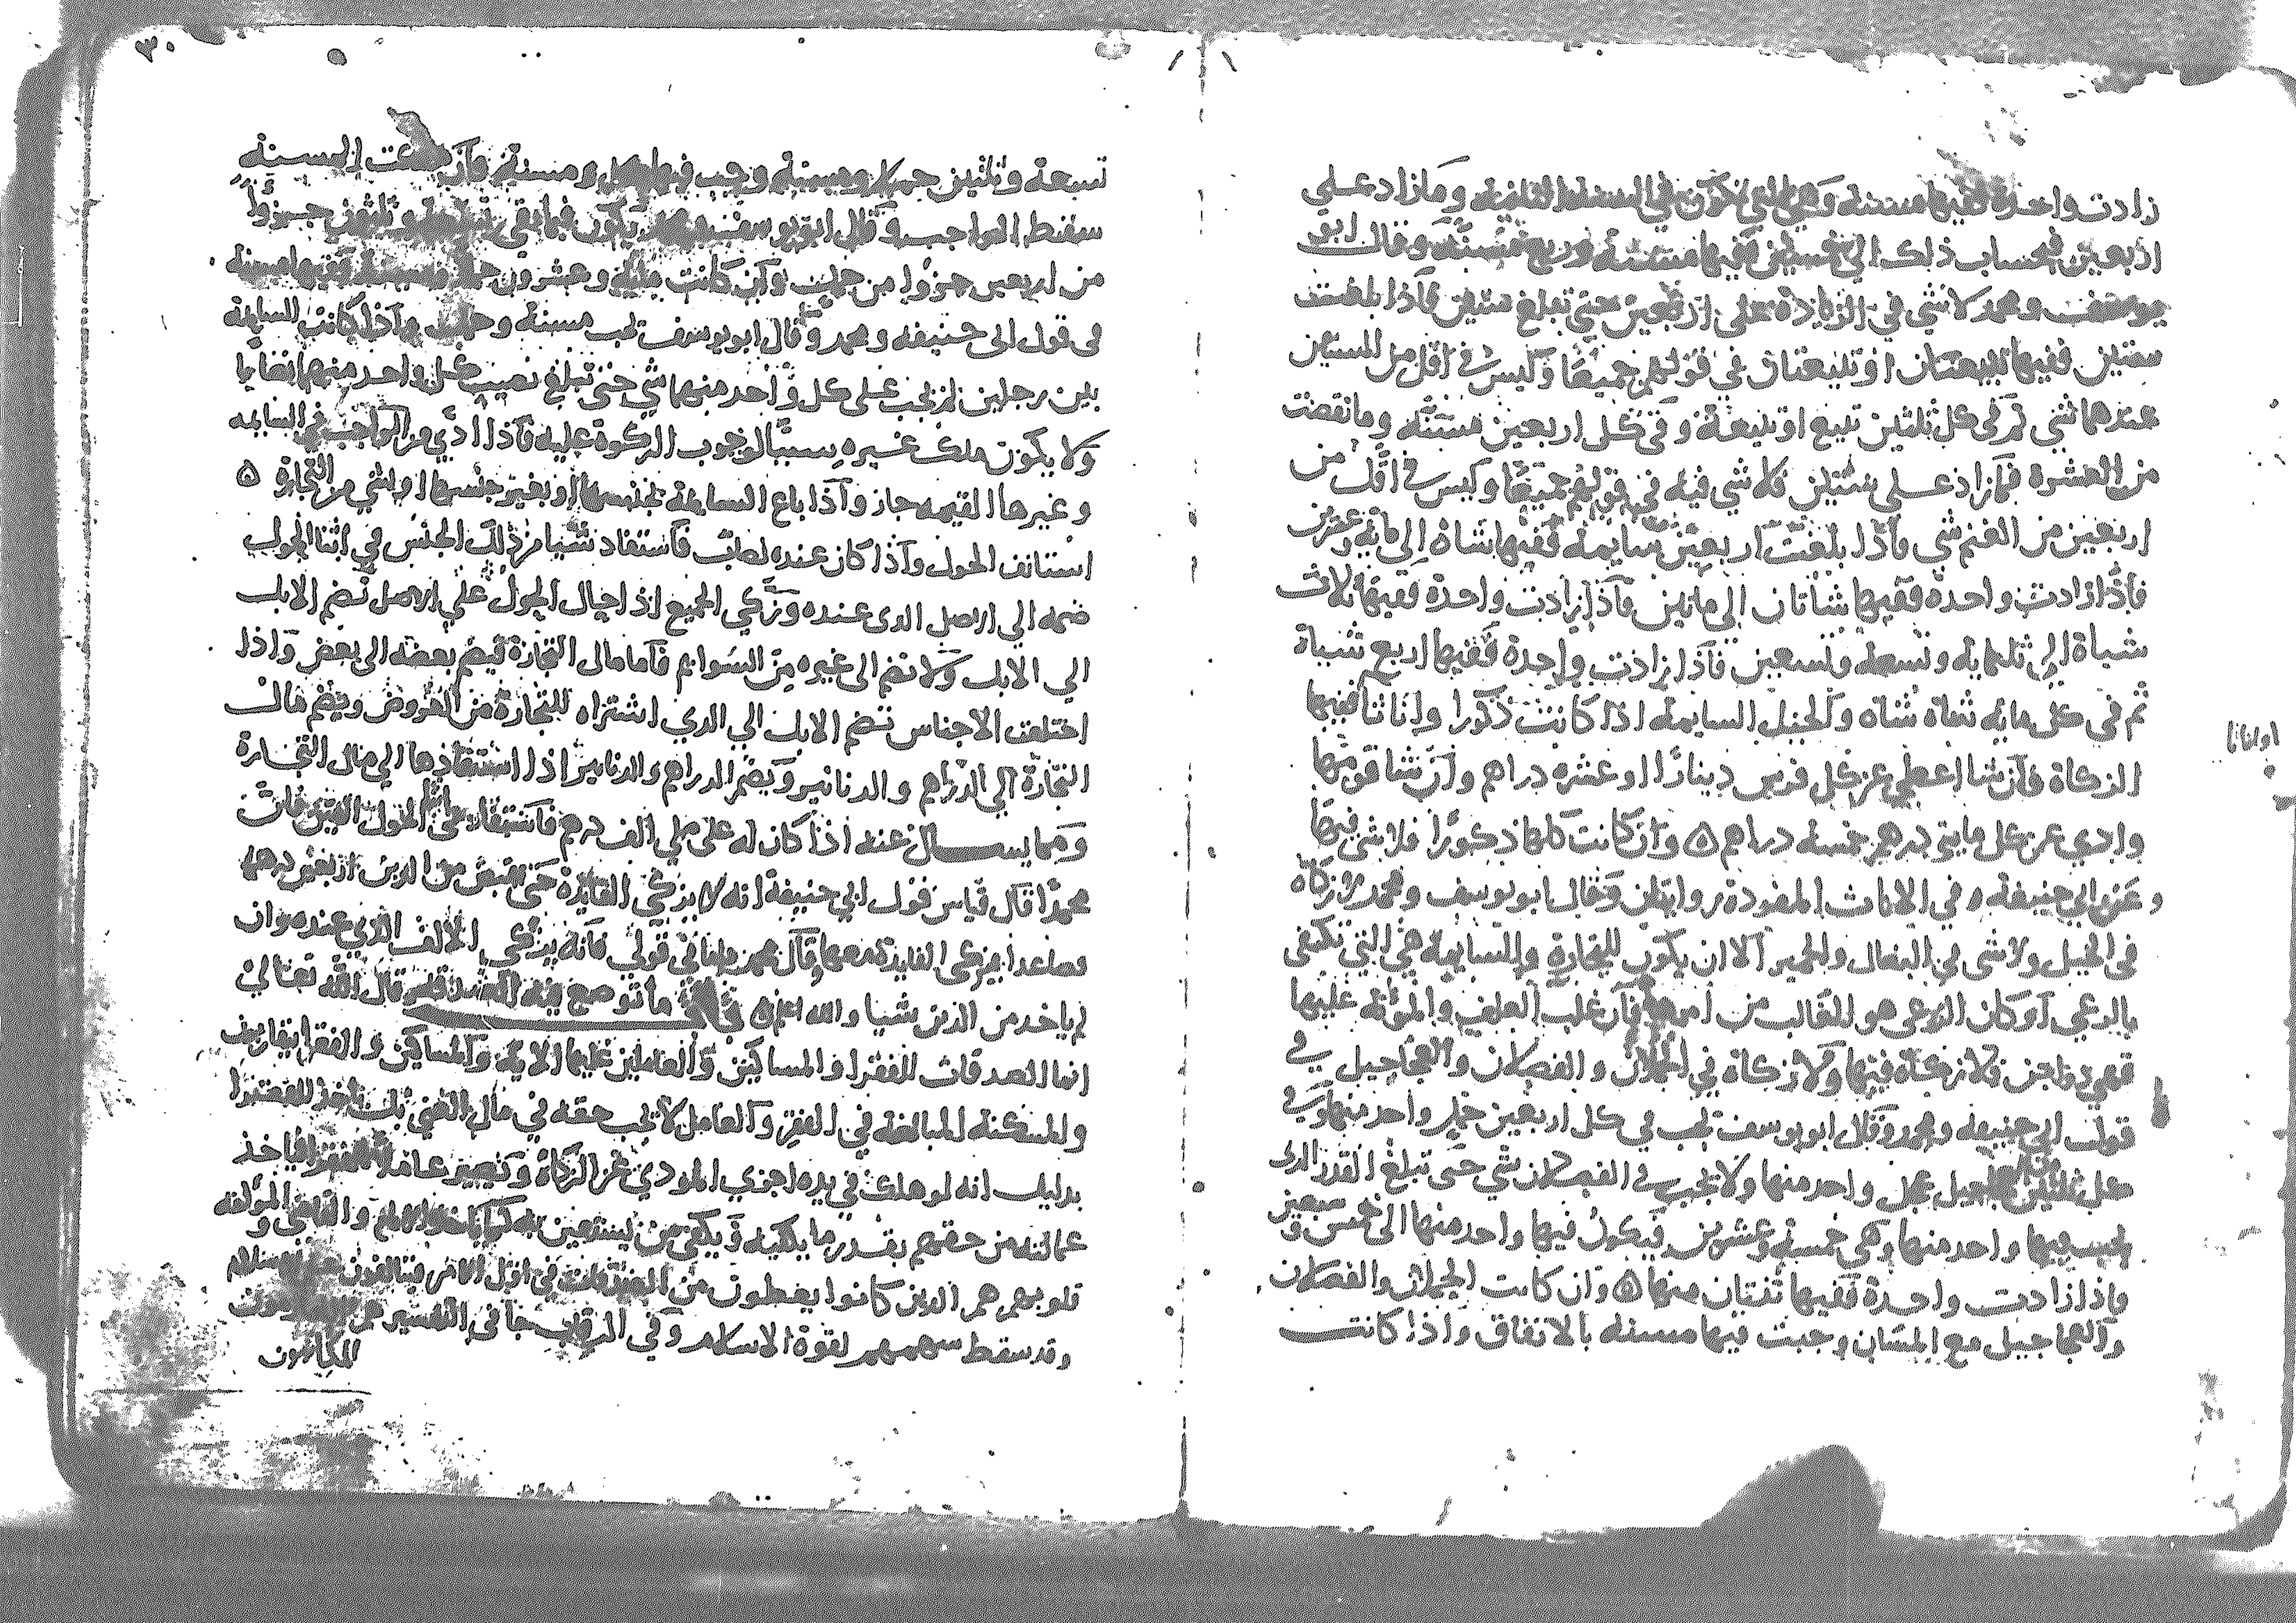 زادت واحدة ففيها مسنة وهي التي تكون في السنة الثانية وما زاد على
اربعين فبحساب ذلك الى خمسين ففيها مسنة وربع مسنة وقال ابو
يوسف ومحمد لا شي في الزيادة على اربعين حتى تبلغ ستين فاذا بلغت
ستين ففيها تبيعان او تبيعتان في قولهم جميعا وليس في اقل من الستين
عندهما شي ثم في كل ثلثين تبيع او تبيعة وفي كل اربعين مسنه وما نقصت
من العشرة فما زاد على ستين فلا شي فيه في قولهم جميعا وليس في اقل من
اربعين من الغنم شي فاذا بلغت اربعين سايمة ففيها شاة الى مايه وعشرين
فاذا زادت واحدة ففيها شاتان الى ماتين فاذا زادت واحدة ففيها ثلاث
شياة الى ثلثمايه وتسعه وتسعين فاذا زادت واحدة ففيها اربع شياة
ثم في كل مايه شاه شاه والخيل السايمة اذا كانت ذكورا واناثا ففيها
اواناثا
الزكاة فان شا اعطى عن كل فرس دينارا او عشره دراهم وان شا قومها
وادي عن كل مايتي درهم خمسه دراهم ٥ وان كانت كلها ذكورا فلا شي فيها
وعن ابي حنيفة وفي الاناث المفردة روايتان وقال ابو يوسف ومحمد لا زكاه
في الخيل ولا شي في البغال والحمير الا ان يكون للتجارة والسايمة هي التي تكتفى
بالرعي او كان الرعي هو الغالب من امرها فان غلب العلف والمؤنة عليها
فلا زكاة فيها ولا زكاة في الحملان والفصلان والعجاجيل في
قول ابي حنيفه ومحمد وقال ابو يوسف تجب في كل اربعين حمل واحد منها وفي
كل ثلثين عجل واحد منها ولا يجب في الفصلان شي حتى تبلغ القدر الذى
تجب فيها واحد منها وهي خمسة وعشرين فيكون فيها واحد منها الى خمس وسبعين
فاذا زادت واحدة ففيها ثنتان منها ٥ وان كانت الحملان والفصلان
والعجاجيل مع المسان وجبت فيها مسنه بالاتفاق واذا كانت
٣٠
تسعة وثلثين حملا ومسنة وجب فيها ومسنة فان المسنة
سقط الواجب وقال ابو يوسف يكون فيما بقي تسعة وثلثون جزوا
من اربعين جزوا من حمل وان كانت مايه وعشرون حملا ففيها مسنة
في قول ابى حنيفه ومحمد وقال ابو يوسف تجب مسنة وحمل واذا كانت السايمة
بين رجلين لم يجب على كل واحد منهما شي حتى تبلغ نصيب كل واحد منهما نصابا
ولا يكون ملك غيره سببا لوجوب الزكوة عليه فاذا ادي من الواجب في السايمه
وغيرها القيمه جاز واذا باع السايمة بجنسها او بغير جنسها او بشي من التجارة ٥
استانف الحول واذا كان عنده نصاب فاستفاد شيا من ذلك الجنس في اثنا الحول
ضمه الي الاصل الذى عنده وزكي الجميع اذا حال الحول على الاصل تضم الابل
الي الابل ولا تضم الى غيره من السوايم فاما مال التجارة فيضم بعضه الى بعض واذا
اختلفت الاجناس تضم الابل الي الذي اشتراه للتجارة من العروض ويضم مال
التجارة الي الدراهم والدنانير ويضم الدراهم والدنانير اذا استفادها الي مال التجارة
ومما يسال عنه اذا كان له على ملي الف درهم فاستفاد الحول الفين فان
محمدا قال قياس قول ابي حنيفة انه لا يزكي الفايدة حتى يقبض من الدين اربعين درهما
فصاعدا يزكى الفايدة معها وقال محمد واما في قولي فانه يزكي الالف الذي عنده وان
لم ياخد من الدين شيا والله اعلم ٥ ما توضع فيه الصدقة قال الله تعالى
انما الصدقات للفقرا والمساكين والعاملين عليها الاية والمساكين والفقرا يتقاربون
والمسكنة المبالغة في الفقر والعامل لا تجب حقه في مال الغني بل ياخد للفقرا
بدليل انه لو هلك في يده اجزي المودي عن الزكاة وتصير عاملا للفقرا فياخذ
عمالته من حقهم بقدر ما يكفيه ويكفي من يستعين به والقاضى والمؤلفة
قلوبهم هم الذين كانوا يعطون من في اول الامر السلام
وقد سقط سهمهم لقوة الاسلام وفي الرقاب جا في التفسير هم المكاتبون
المكاتبون